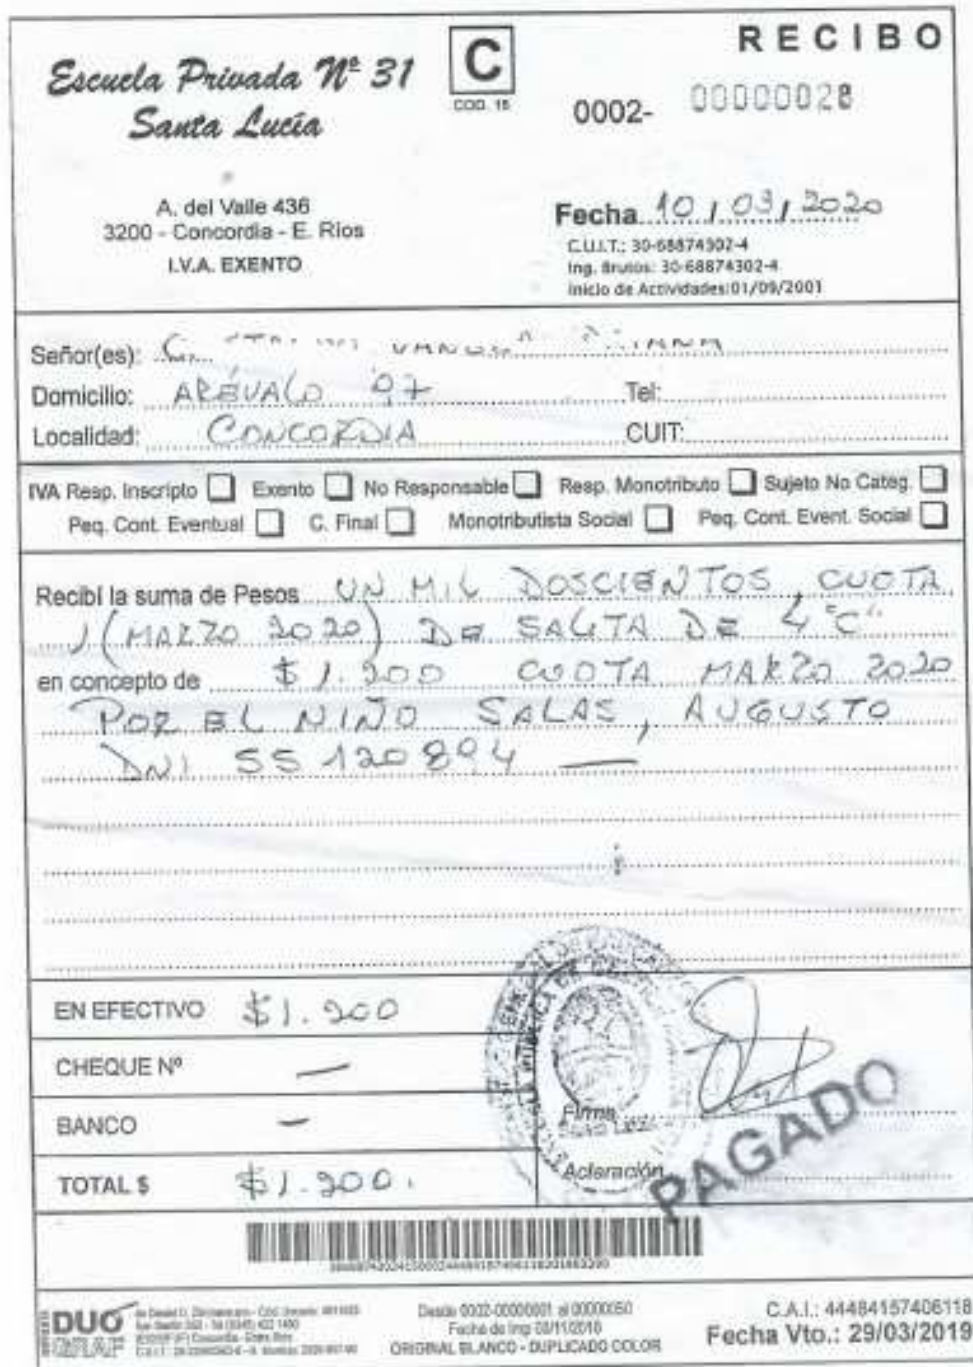 RECIBO
Escuela Privada Nº 31
Santa Lucía
C
COD. 15
0002- 00000028
A. del Valle 436
3200 - Concordia - E. Ríos
I.V.A. EXENTO
Fecha 10 / 03 / 2020
C.U.I.T.: 30-68874302-4
Ing. Brutos: 30-68874302-4
Inicio de Actividades: 01/09/2001
Señor(es):
Domicilio: ARÉVALO 97 Tel:
Localidad: CONCORDIA CUIT:
IVA Resp. Inscripto Exento No Responsable Resp. Monotributo Sujeto No Categ.
Peq. Cont. Eventual C. Final Monotributista Social Peq. Cont. Event. Social
Recibí la suma de Pesos UN MIL DOSCIENTOS, CUOTA
1 (MARZO 2020) DE SALITA DE 4 "C"
en concepto de $ 1.200 CUOTA MARZO 2020
POR EL NIÑO SALAS, AUGUSTO
DNI 55120894 —
EN EFECTIVO $1.200
CHEQUE Nº —
BANCO —
TOTAL $ $1.200.
Firma
Aclaración
PAGADO
DUO
Desde 0002-00000001 al 00000050
ORIGINAL BLANCO - DUPLICADO COLOR
C.A.I.: 44484157406118
Fecha Vto.: 29/03/2019